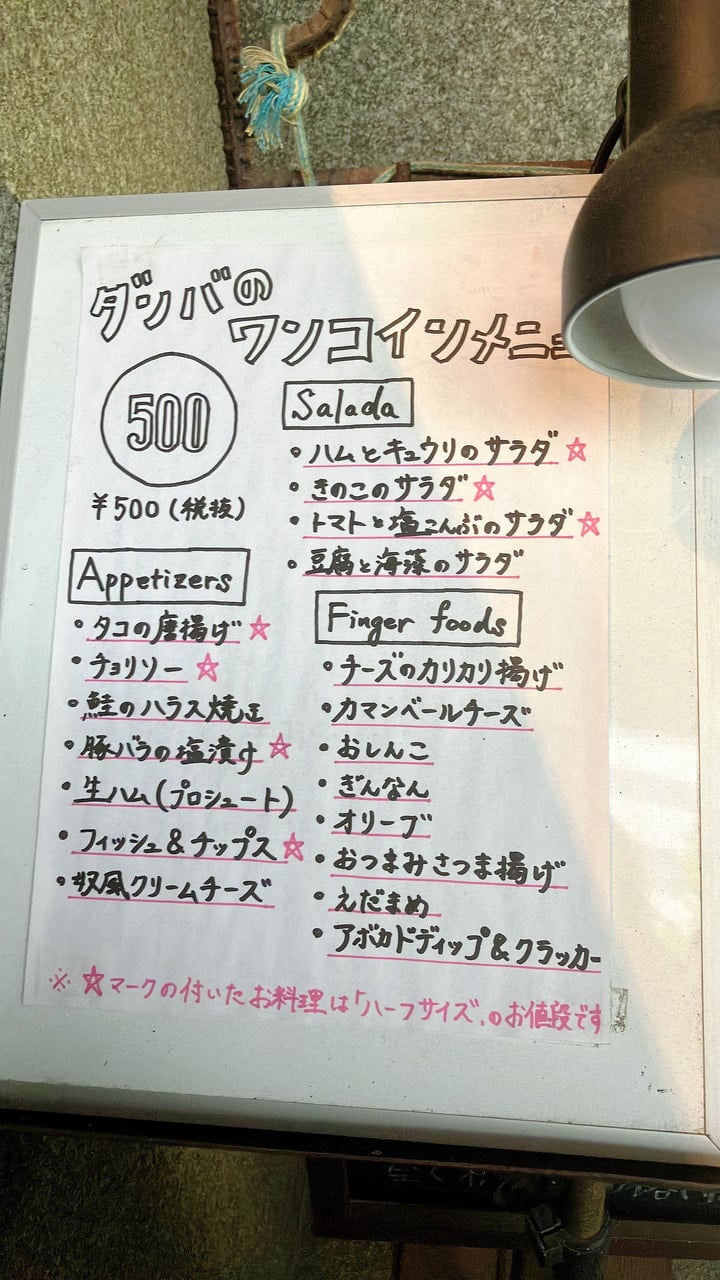 ダンバの
ワンコインメニュー
500
¥500(税抜)
Salada
・ハムとキュウリのサラダ☆
・きのこのサラダ☆
・トマトと塩こんぶのサラダ☆
・豆腐と海藻のサラダ
Appetizers
・タコの唐揚げ☆
・チョリソー☆
・鮭のハラス焼き
・豚バラの塩漬け☆
・生ハム(プロシュート)
・フィッシュ&チップス☆
風クリームチーズ
Finger foods
・チーズのカリカリ揚げ
・カマンベールチーズ
・おしんこ
・ぎんなん
・オリーブ
・おつまみさつま揚げ
・えだまめ
・アボカドディップ&クラッカー
※☆マークの付いたお料理は「ハーフサイズ」のお値段です